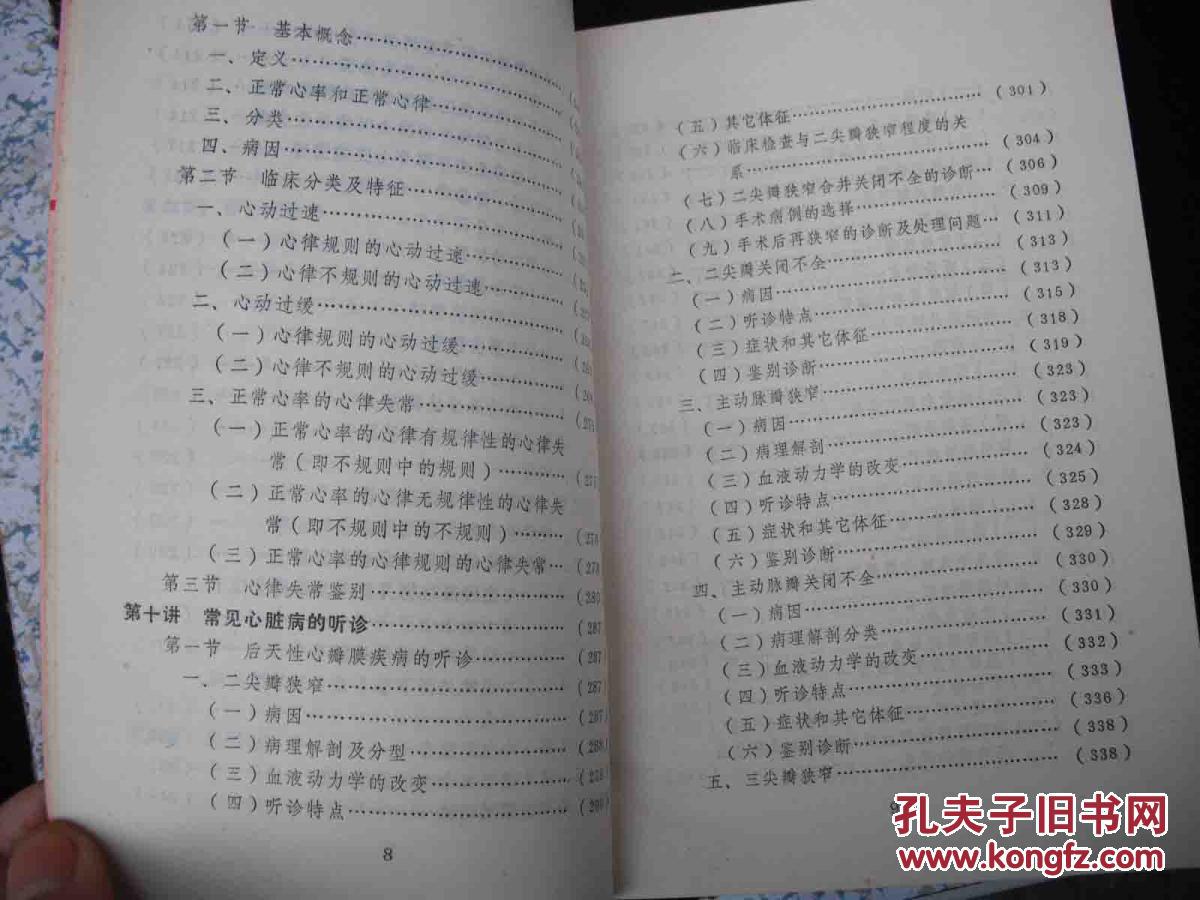 第一节 基本概念
一、定义
二、正常心率和正常心律
三、分类
四、病因
第二节 临床分类及特征
一、心动过速
（一）心律规则的心动过速
（二）心律不规则的心动过速
二、心动过缓
（一）心律规则的心动过缓
（二）心律不规则的心动过缓
三、正常心率的心律失常
（一）正常心率的心律有规律性的心律失
常（即不规则中的规则）
（二）正常心率的心律无规律性的心律失
常（即不规则中的不规则）
（三）正常心率的心律规则的心律失常
第三节 心律失常鉴别
第十讲 常见心脏病的听诊…（287
第一节 后天性心瓣膜疾病的听诊…（287
一、二尖瓣狭窄…（287
（一）病因
（二）病理解剖及分型
（三）血液动力学的改变
（四）听诊特点
8
（五）其它体征…（301）
（六）临床检查与二尖瓣狭窄程度的关
系…（304）
（七）二尖瓣狭窄合并关闭不全的诊断…（306）
（八）手术病例的选择…（309）
（九）手术后再狭窄的诊断及处理问题…（311）
二、二尖瓣关闭不全…（313）
（一）病因…（313）
（二）听诊特点…（315）
（三）症状和其它体征…（318）
（四）鉴别诊断…（319）
三、主动脉瓣狭窄…（323）
（一）病因…（323）
（二）病理解剖…（323）
（三）血液动力学的改变…（324）
（四）听诊特点…（325）
（五）症状和其它体征…（328）
（六）鉴别诊断…（329）
四、主动脉瓣关闭不全…（330）
（一）病因…（330）
（二）病理解剖分类…（331）
（三）血液动力学的改变…（332）
（四）听诊特点…（333）
（五）症状和其它体征…（336）
（六）鉴别诊断…（338）
五、三尖瓣狭窄…（338）
9
孔夫子旧书网
www.kongfz.com